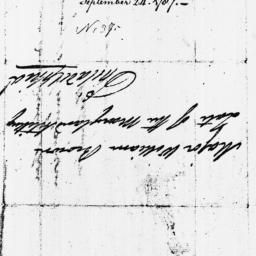 September 24. 1787. —
No 39.
Major William Brown
late of the Maryland Artillery
Philadelphia